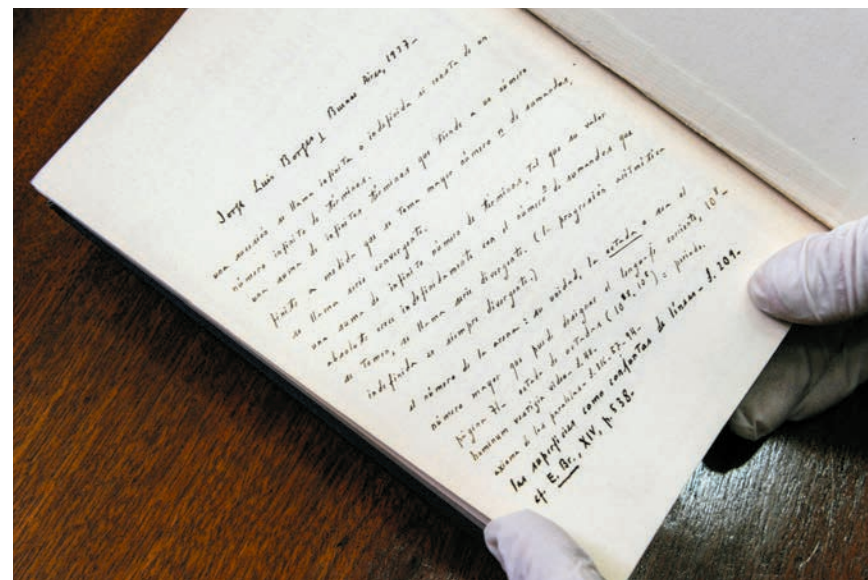 Jorge Luis Borges, Buenos Aires, 1937_
una sucesión se llama infinita o indefinida si consta de un
número infinito de términos.
una suma de infinitos términos que tiende a un número
finito a medida que se toma mayor número n de sumandos,
se llama serie convergente.
una suma de infinito número de términos, tal que su valor
absoluto crece indefinidamente con el número n de sumandos que
se toman, se llama serie divergente. (la progresión aritmética
indefinida es siempre divergente.)
el número de la arena: su unidad, la octada o sea el
número mayor que puede designar el lenguaje corriente, 10⁸_
página 71_ octada de octadas (10⁸⁸, 10⁸) = período.
hominum vestigia video_ 2, 88.
axioma de las paralelas_ 2, 116-57-94_
las superficies como conjuntos de líneas_ 2, 209_
cf E. Br., XIV, p. 538.